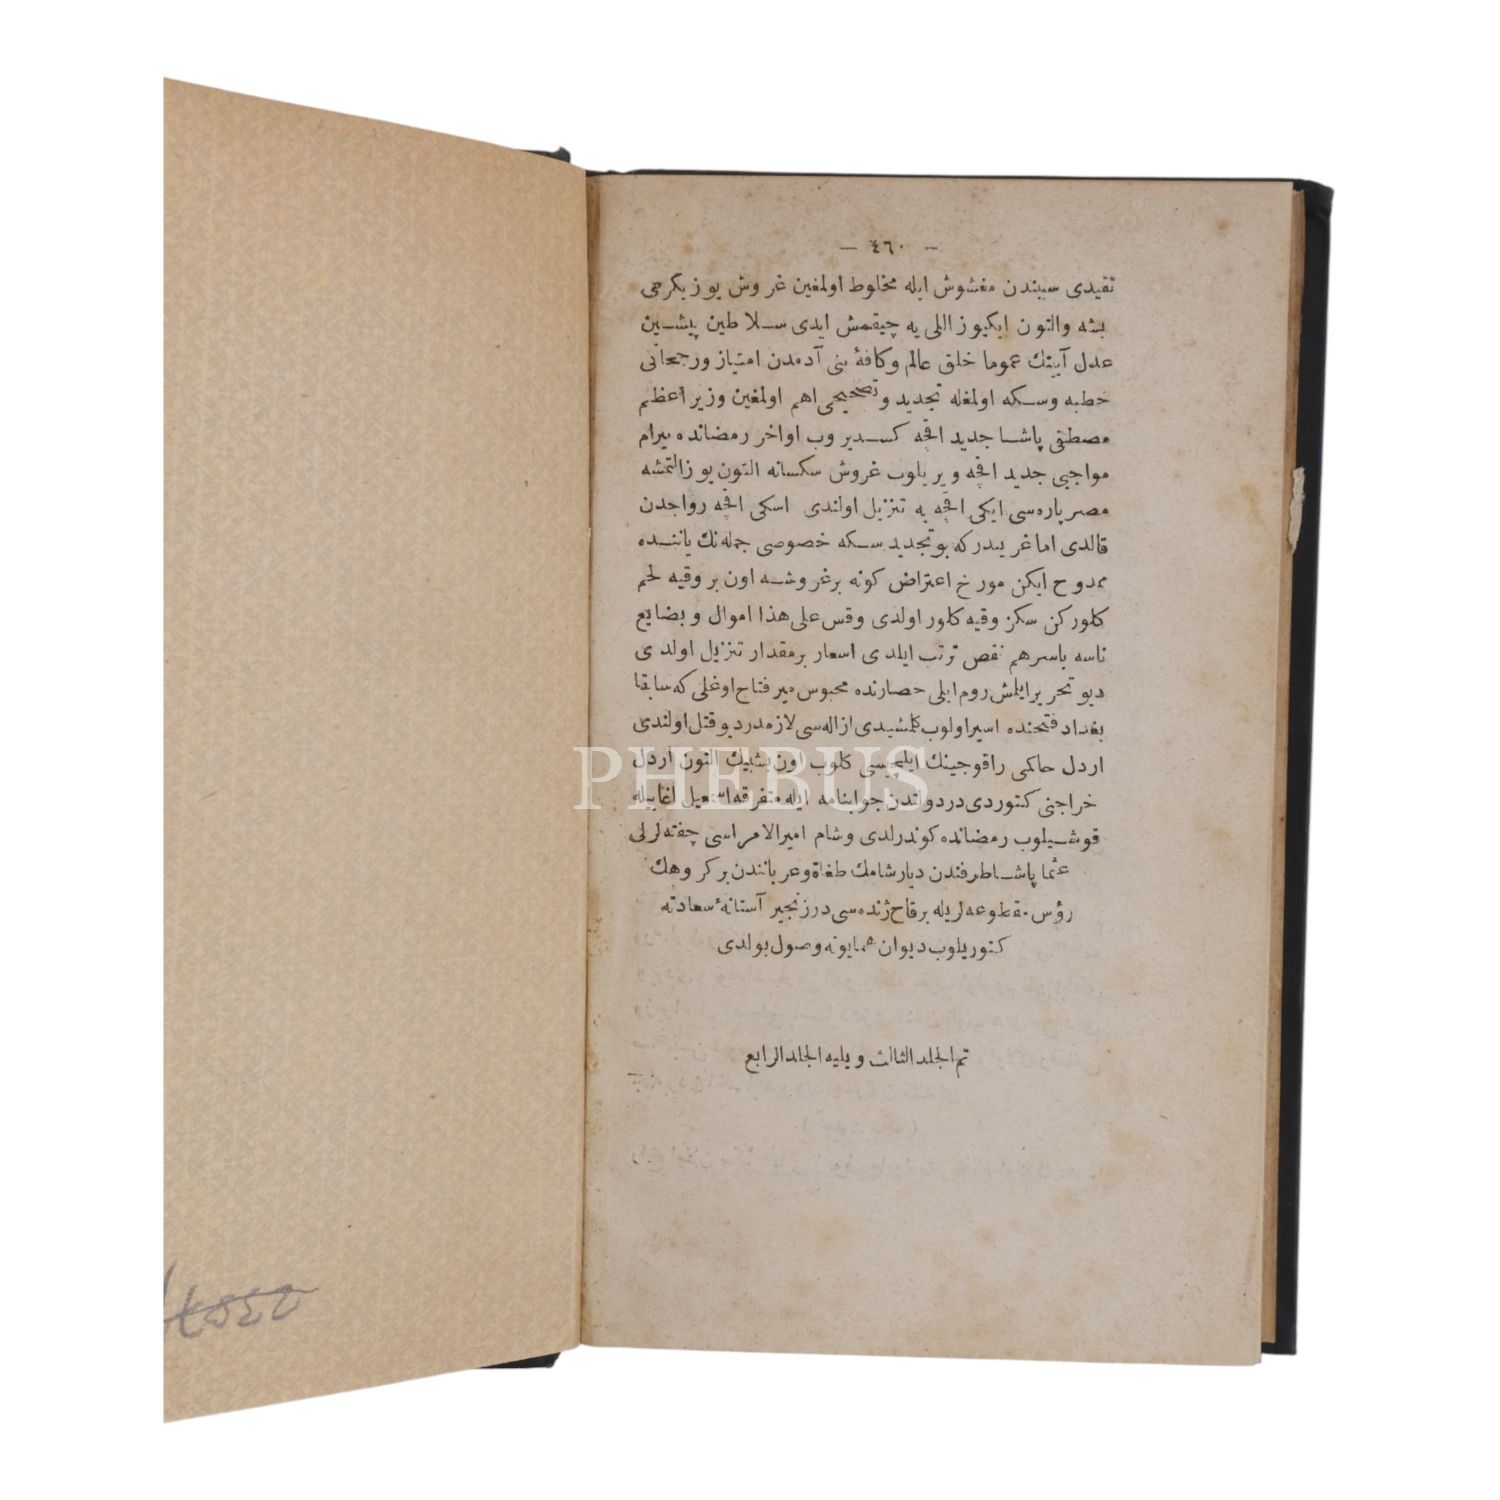 — ٤٦٠ —
تقيدى سببندن مغشوش ايله مخلوط اولمغين غروش يوز يكرمى
بشه والتون ايكيوز اللى يه چيقمش ايدى سلاطين پيشين
عدل آيينك عموما خلق عالم وكافهٔ بنى آدمدن امتياز ورجحانى
خطبه وسكه اولمغله تجديد وتصحيحى اهم اولمغين وزير اعظم
مصطفى پاشا جديد اقچه كسديروب اواخر رمضانده بيرام
مواجبى جديد اقچه ويريلوب غروش سكسانه التون يوز التمشه
مصر پاره سى ايكى اقچه يه تنزيل اولندى اسكى اقچه رواجدن
قالدى اما غريبدركه بو تجديد سكه خصوصى جمله نك ياننده
ممدوح ايكن مورخ اعتراض كونه برغروشه اون بر وقيه لحم
كلوركن سكز وقيه كلور اولدى وقس على هذا اموال وبضايع
ناسه باسرهم نقص ترتب ايلدى اسعار برمقدار تنزيل اولدى
ديو تحرير ايلمش روم ايلى حصارنده محبوس مير فتاح اوغلى كه سابقا
بغداد فتحنده اسير اولوب كلمشيدى ازاله سى لازمدر ديو قتل اولندى
اردل حاكمى راقوجينك ايلچيسى كلوب اون بشبيك التون اردل
خراجنى كتوردى در دولتدن جوابنامه ايله متفرقه اسمعيل اغا ييله
قوشيلوب رمضانده كوندرلدى وشام امير الامراسى چفته لرلى
عثما پاشا طرفندن ديار شامك طغاة وعرباننندن بر كروهك
رؤس مقطوعه لريله برقاچ زنده سى در زنجير آستانهٔ سعادته
كتوريلوب ديوان همايونه وصول بولدى
تم الجلد الثالث ويليه الجلد الرابع
PHEBUS